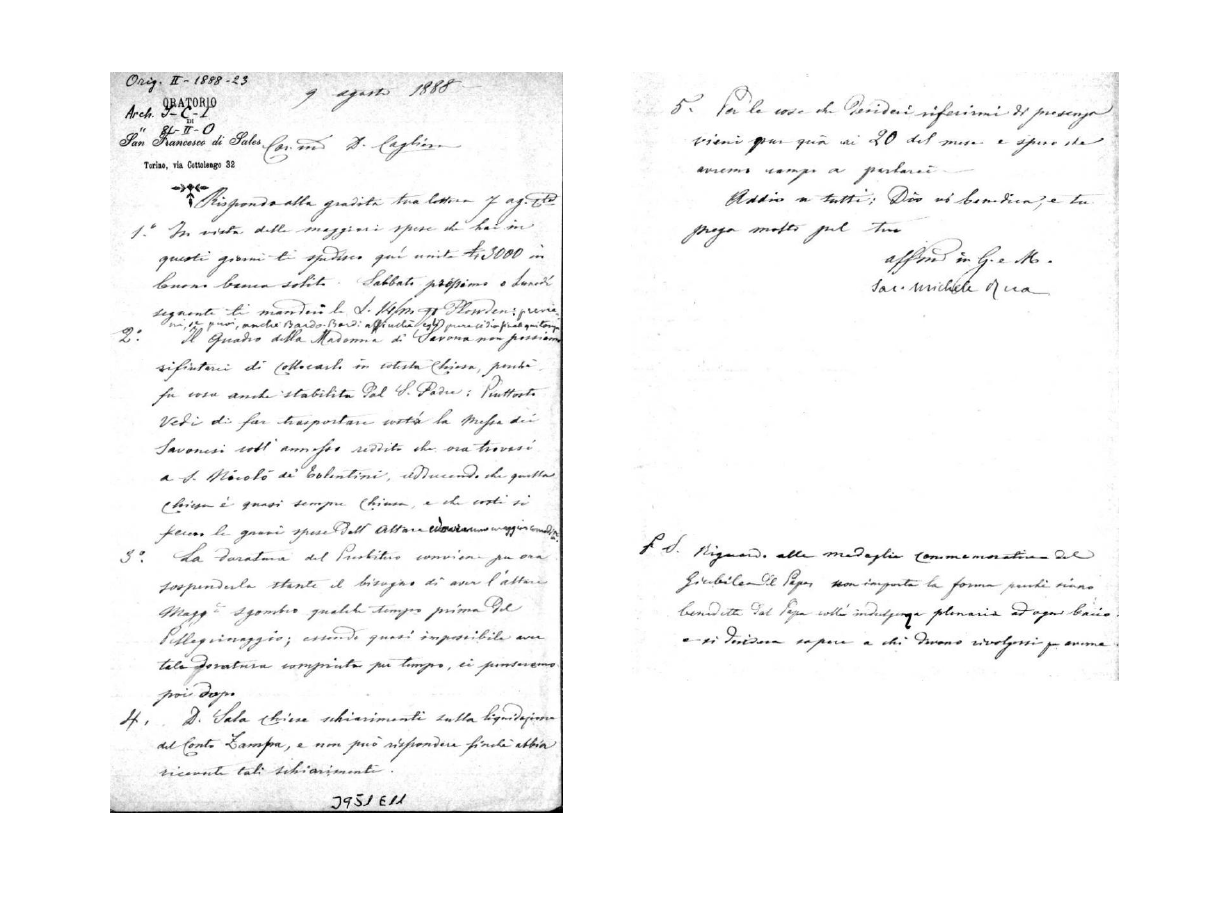 Orig. II - 1888-23
9 agosto 1888
ORATORIO
Arch. J-C-1
DI
84-II-O
San Francesco di Sales
Car.mo D. Cagliero
Torino, via Cottolengo 32
Rispondo alla gradita tua lettera 7 ag.
1.° In vista delle maggiori spese che hai in
questi giorni ti spedisco quì unite 3000 in
buono banca solito. Sabbato prossimo o Lunedì
seguente ti manderò le Plowden: previe-
ni, se può, anche Bardo-Bardi
2°. Il Quadro della Madonna di Savona non possiamo
rifiutarci di collocarlo in cotesta Chiesa, perchè
fu cosa anche stabilita dal S. Padre: Piuttosto
vedi di far trasportare costà la Messa dei
Savonesi coll' annesso reddito che ora trovasi
a S. Nicolò dei Tolentini, adducendo che quella
chiesa è quasi sempre chiusa, e che costì si
fecero le gravi spese dell' Altare
3° La doratura del Presbitero conviene per ora
sospenderla stante il bisogno di aver l'altare
Magg.e sgombro qualche tempo prima del
Pellegrinaggio; essendo quasi impossibile aver
tale doratura compiuta per tempo, ci penseremo
poi dopo
4. D. Sala chiese schiarimenti sulla liquidazione
del Conto Zampa, e non può rispondere finchè abbia
ricevute tali schiarimenti.
J951E11
5. Per le cose che desideri riferirmi di presenza
vieni pur quà ai 20 del mese e spero che
avremo campo a parlarci
Addio a tutti; Dio vi benedica, e tu
prega molto pel tuo
aff.mo in G. e M.
Sac. Michele Rua
P. S. Riguardo alle medaglie Commemorative del
Giubileo del Papa non importa la forma purchè siano
benedette dal Papa colla indulgenza plenaria ad ogni bacio
e si desidera sapere a chi devono rivolgersi p. averne